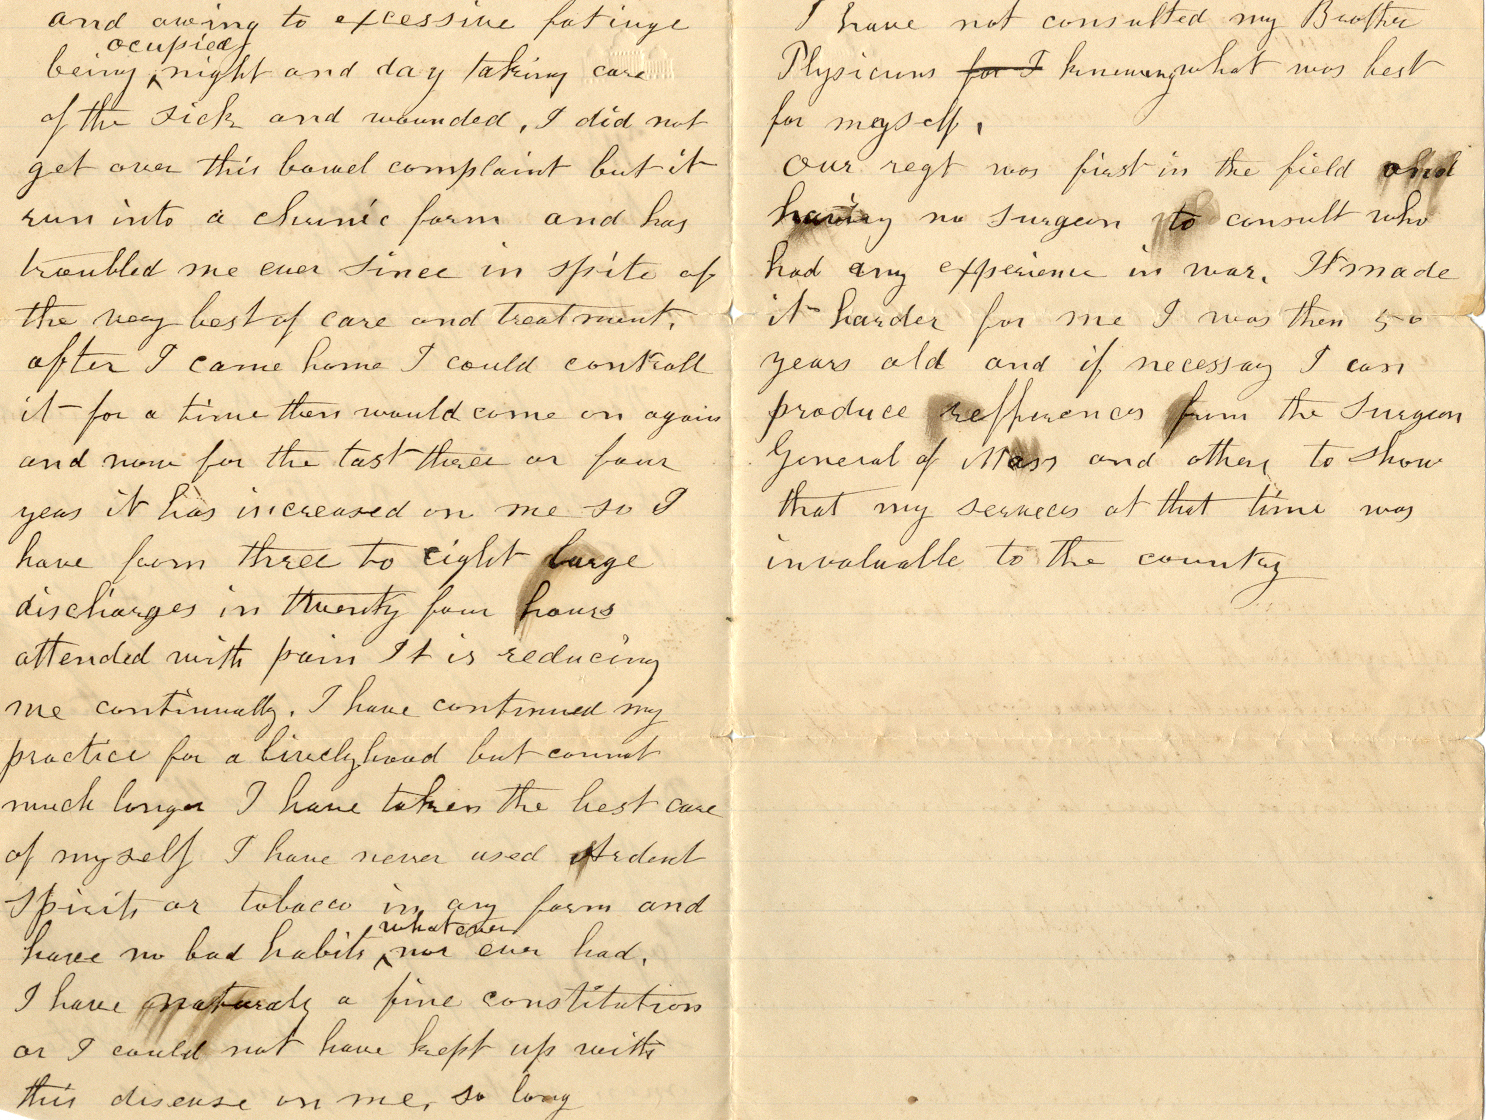 and owing to excessive fatiuge
ocupied
being night and day taking care
of the sick and wounded, I did not
get over this bowel complaint but it
run into a chronic form and has
troubled me ever since in spite of
the very best of care and treatment.
after I came home I could controll
it for a time then would come on again
and now for the last three or four
years it has increased on me so I
have from three to eight large
discharges in twenty four hours
attended with pain It is reducing
me continually. I have continued my
practice for a livelyhood but cannot
much longer I have taken the best care
of myself I have never used Ardent
spirits or tobacco in any form and
whatever
have no bad habits nor ever had.
I have naturaly a fine constitution
or I could not have kept up with
this disease on me, so long
I have not consulted my Brother
Physicians for I knowing what was best
for myself.
Our regt was first in the field and
having no surgeon to consult who
had any experience in war. It made
it harder for me I was then 50
years old and if necessay I can
produce refferences from the Surgeon
General of Mass and others to show
that my services at that time was
invaluable to the country